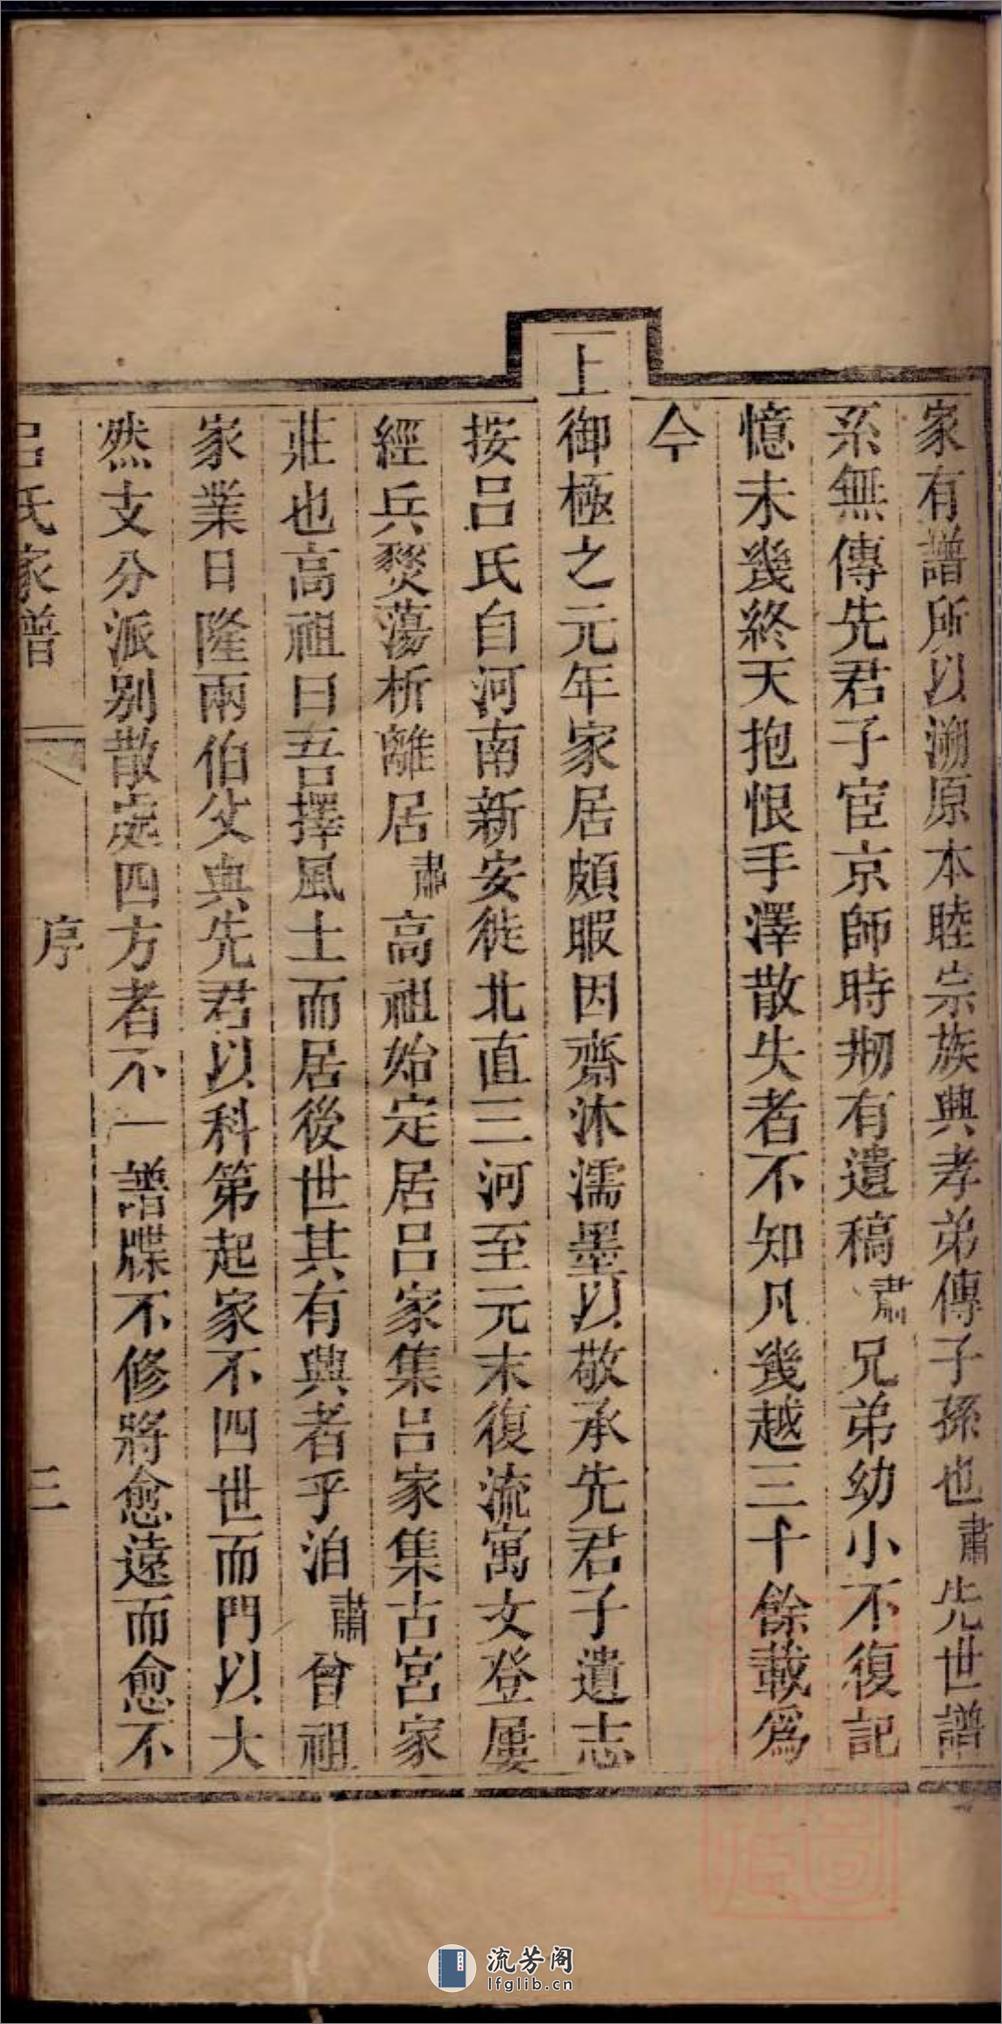 家有譜所以溯原本睦宗族興孝弟傳子孫也肅先世譜
系無傳先君子宦京師時刱有遺稿肅兄弟幼小不復記
憶未幾終天抱恨手澤散失者不知凡幾越三十餘載爲
今
上御極之元年家居頗暇因齋沐濡墨以敬承先君子遺志
按呂氏自河南新安徙北直三河至元末復流寓文登屢
經兵燹蕩析離居肅高祖始定居呂家集呂家集古宮家
莊也高祖曰吾擇風土而居後世其有興者乎洎肅曾祖
家業日隆兩伯父與先君以科第起家不四世而門以大
然支分派别散處四方者不一譜牒不修將愈遠而愈不
呂氏家譜
序
三
流芳阁
lfglib.cn